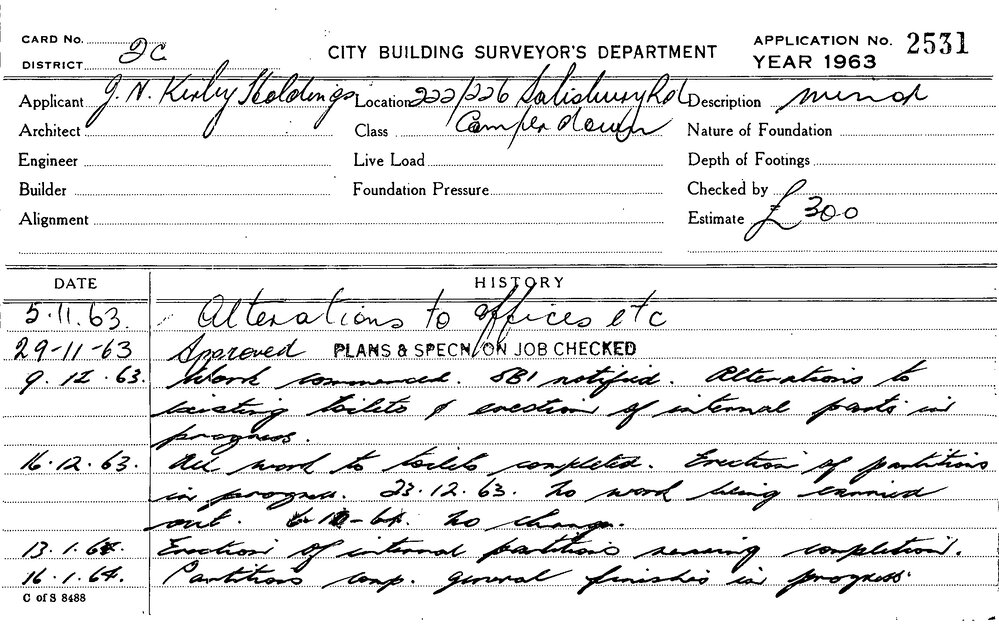 CARD No.
DISTRICT
CITY BUILDING SURVEYOR'S DEPARTMENT
APPLICATION No. 2531
YEAR 1963
Applicant J. N. Kirby Holdings Location 222/226 Salisbury Rd Description minor
Architect Class Camperdown Nature of Foundation
Engineer Live Load Depth of Footings
Builder Foundation Pressure Checked by
Alignment Estimate £300
DATE HISTORY
5.11.63. Alterations to offices etc
29-11-63 Approved PLANS & SPECN/ON JOB CHECKED
9.12.63. Work commenced. SBI notified. Alterations to
existing toilets & erection of internal parts in
progress.
16.12.63. All work to toilets completed. Erection of partitions
in progress. 23.12.63. No work being carried
out. No change.
13.1.64. Erection of internal partitions nearing completion.
16.1.64. Partitions comp. general finishes in progress.
C of S 8488